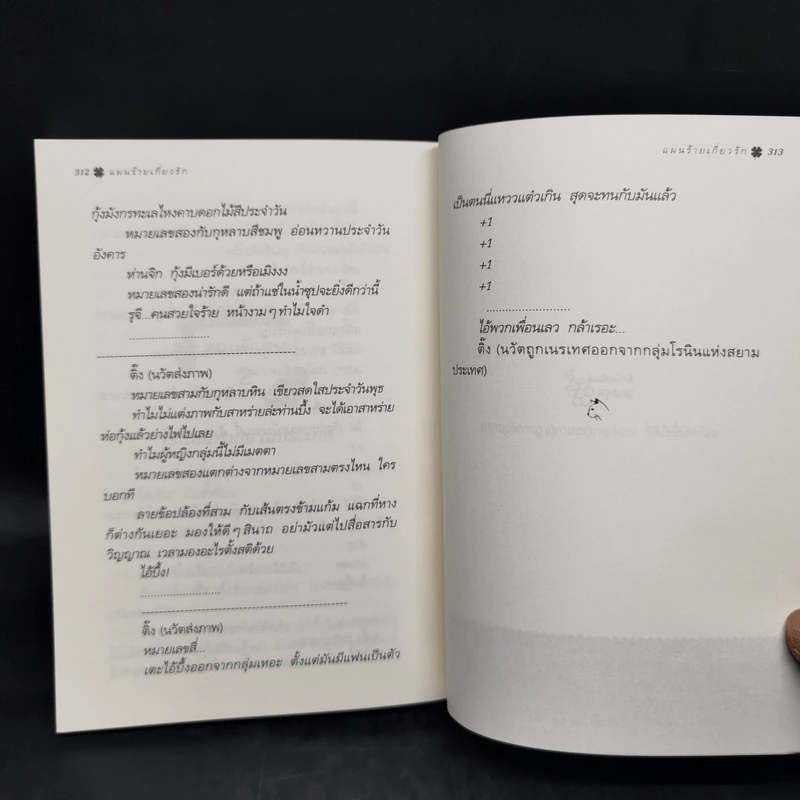 312 แผนร้ายเกี่ยวรัก
กุ้งมังกรทะเลไหงคาบดอกไม้สีประจำวัน
หมายเลขสองกับกุหลาบสีชมพู อ่อนหวานประจำวัน
อังคาร
ห่านจิก กุ้งมีเบอร์ด้วยหรือเมิงงง
หมายเลขสองน่ารักดี แต่ถ้าแช่ในน้ำซุปจะยิ่งดีกว่านี้
รุจี...คนสวยใจร้าย หน้างามๆ ทำไมใจดำ
............................
------------------------------------------------
ติ๊ง (นวัตส่งภาพ)
หมายเลขสามกับกุหลาบหิน เขียวสดใสประจำวันพุธ
ทำไมไม่แต่งภาพกับสาหร่ายล่ะท่านบึ้ง จะได้เอาสาหร่าย
ห่อกุ้งแล้วย่างไฟไปเลย
ทำไมผู้หญิงกลุ่มนี้ไม่มีเมตตา
หมายเลขสองแตกต่างจากหมายเลขสามตรงไหน ใคร
บอกที
ลายข้อปล้องที่สาม กับเส้นตรงข้างแก้ม แฉกที่หาง
ก็ต่างกันเยอะ มองให้ดีๆ สินาถ อย่ามัวแต่ไปสื่อสารกับ
วิญญาณ เวลามองอะไรตั้งสติด้วย
ไอ้บึ้ง!
............................
------------------------------------------------
ติ๊ง (นวัตส่งภาพ)
หมายเลขสี่...
เตะไอ้บึ้งออกจากกลุ่มเหอะ ตั้งแต่มันมีแฟนเป็นตัว
แผนร้ายเกี่ยวรัก 313
เป็นตนนี่แหววแต๋วเกิน สุดจะทนกับมันแล้ว
+1
+1
+1
+1
............................
ไอ้พวกเพื่อนเลว กล้าเรอะ...
ติ๊ง (นวัตถูกเนรเทศออกจากกลุ่มโรนินแห่งสยาม
ประเทศ)